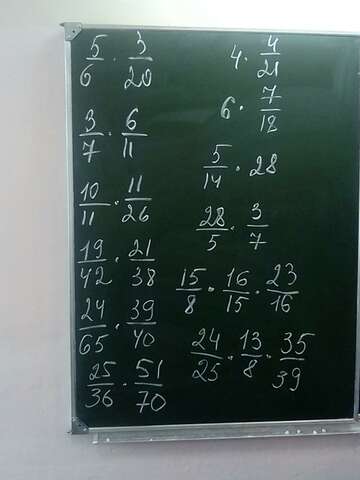 5/6 · 3/20
3/7 · 6/11
10/11 · 11/26
19/42 · 21/38
24/65 · 39/40
25/36 · 51/70
4 · 4/21
6 · 7/12
5/14 · 28
28/5 · 3/7
15/8 · 16/15 · 23/16
24/25 · 13/8 · 35/39